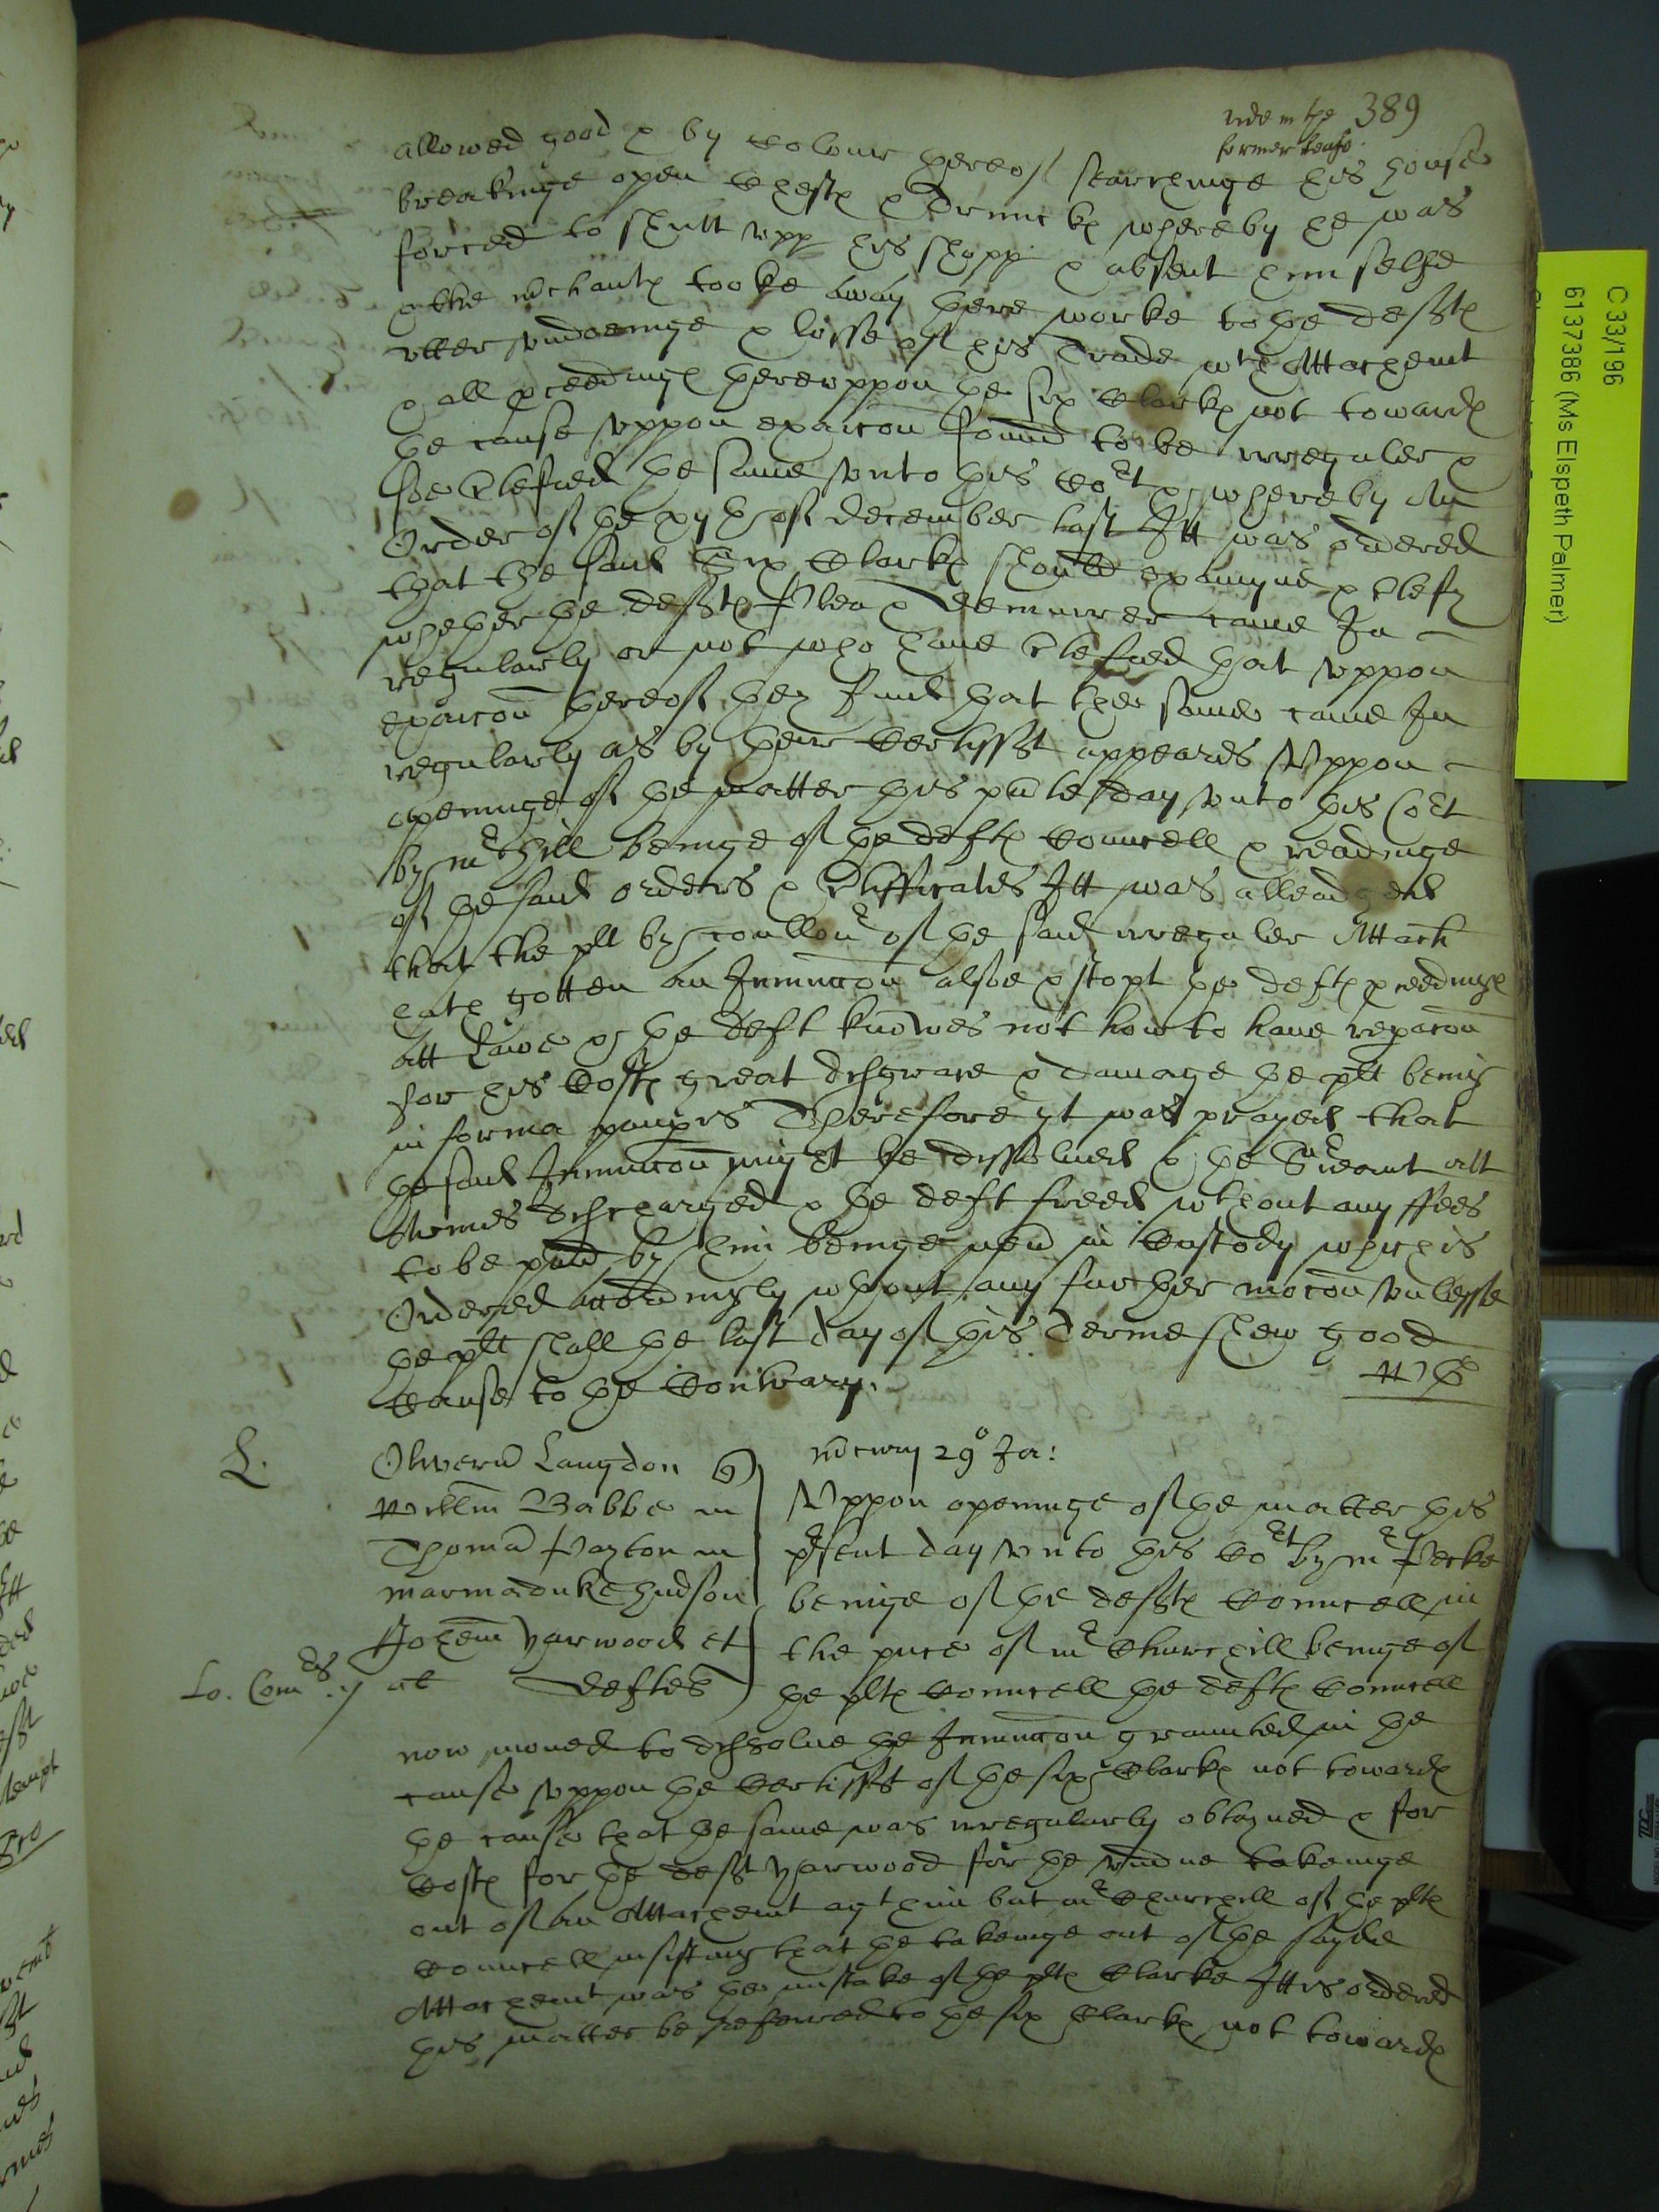 vide in the 389
former leafe.
allowed good & by Colour thereof searchinge his house
breakinge open Chests & Truncks whereby he was
forced to shutt vpp his shopp & absent himselfe
& the mchants tooke away there worke to the defts
vtter vndoeinge & losse of his Trade wch Attachemt
& all pceedings therevppon the six Clarks not towards
the cause vppon exaicon found to be irreguler &
soe Ctefied the same vnto this Cort & whereby An
Order of the xyth of december last Itt was ordered
that the said Six Clarks should examyne & Ctefy
whether the defts Plea & demurrer came In
regularly or not who haue Ctefied that vppon
exaicon thereof they find that the same came In
regularly as by their Certifft appeares Vppon
openinge of the matter this pnte day vnto this Cort
by mr Hill beinge of the defts Councell & readinge
of the said orders & Ctifficates Itt was alleadged
that the plt by coullor of the said irreguler Attach
hath gotten an Iniuncon alsoe & stopt the defts pceedings
att Lawe & the deft knowes not how to haue repacon
for his Costs great disgrace & damage the plt being
in forma paupis Therefore yt was prayed that
the said Iniuncon might be dissolued & the Srieant att
Armes discharged & the deft freed wthout any ffees
to be paid by him beinge now in Custody which is
Ordered accordingly wthout any further mocon vnlesse
the plt shall the last day of this Terme shew good
Cause to the Contrary.
L.
Oliverū Langdon
Willm Babbe
Thomā Payton
marmaduke Hudson
Johem Yarwood et
al deftes
Lo. Comrs.
mcurij 29o Ja:
Vppon openinge of the matter this
psent day vnto this Cort by mr Pecke
beinge of the defts Councell in
the pnce of mr Churchill beinge of
the plts Councell the defts Councell
now moued to dissolue the Iniuncon graunted in the
cause vppon the Certifft of the six Clarks not towards
the cause that the same was irregularly obtayned & for
Costs for the deft Yarwood for the vndue takeinge
out of an Attachemt agt him but mr Churchill of the plts
Councell insisting that the takeinge out of the sayde
Attachemt was the mistake of the plts Clarke Itt is ordered
this matter be referred to the six Clarks not towards